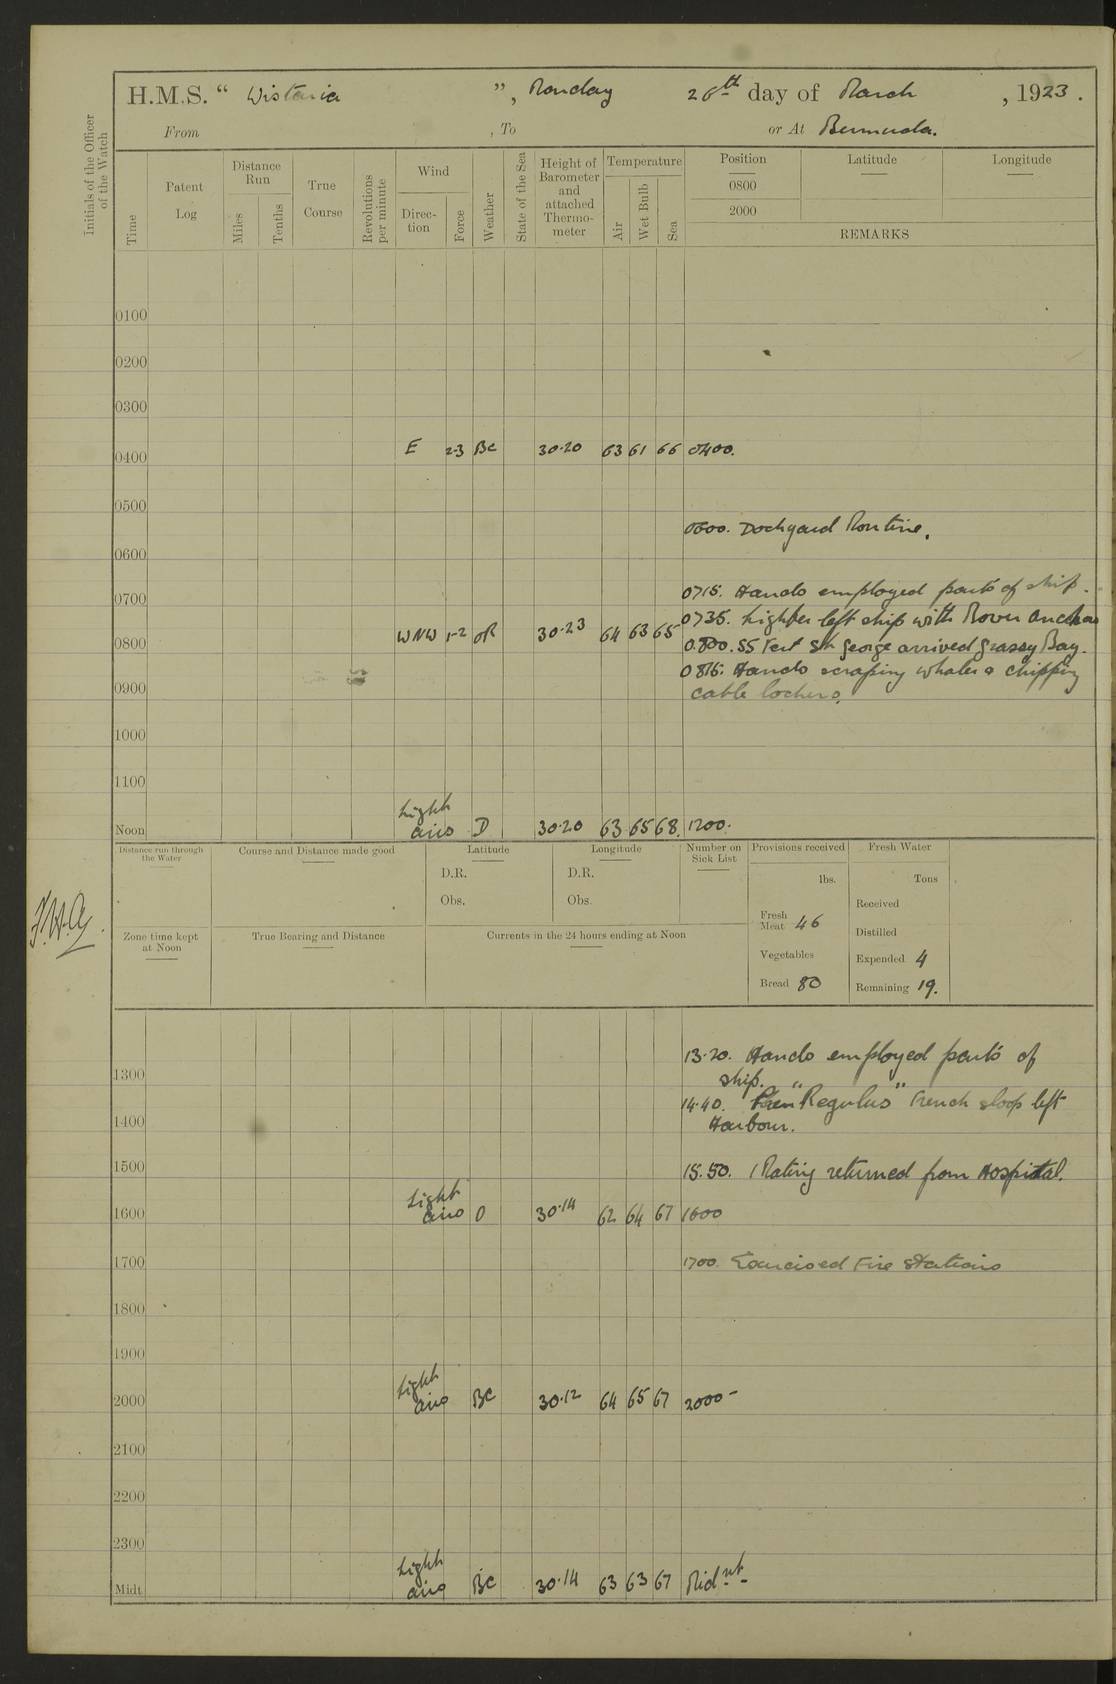 H.M.S. " Wistaria ", Monday 26th day of March, 1923.
From , To or At Bermuda.
Initials of the Officer of the Watch
Time
Patent Log
Distance Run
Miles
Tenths
True Course
Revolutions per minute
Wind
Direc-tion
Force
Weather
State of the Sea
Height of Barometer and attached Thermo-meter
Temperature
Air
Wet Bulb
Sea
Position Latitude Longitude
0800
2000
REMARKS
0100
0200
0300
0400 E 2-3 BC 30.20 63 61 66 0400.
0500
0600. Dockyard Routine.
0600
0715. Hands employed parts of ship.
0700
0735. Lighter left ship with Bower anchor
0800 WNW 1-2 OR 30.23 64 63 65
0800. SS Fort St George arrived Grassy Bay.
0815. Hands scraping whaler & chipping
0900
cable lockers.
1000
1100
Noon Light airs D 30.20 63 65 68. 1200.
Distance run through the Water
Course and Distance made good
Latitude
D.R.
Obs.
Longitude
D.R.
Obs.
Number on Sick List
Provisions received
lbs.
Fresh Meat 46
Vegetables
Bread 80
Fresh Water
Tons
Received
Distilled
Expended 4
Remaining 19.
F.H.A.
Zone time kept at Noon
True Bearing and Distance
Currents in the 24 hours ending at Noon
13.20. Hands employed parts of
1300
ship.
14.40. "Regulus" French sloop left
1400
Harbour.
1500
15.50. 1 Rating returned from Hospital.
1600 Light airs O 30.14 62 64 67 1600
1700
1700. Exercised Fire Stations
1800
1900
2000 Light airs BC 30.12 64 65 67 2000-
2100
2200
2300
Midt. Light airs BC 30.14 63 63 67 Midnt-